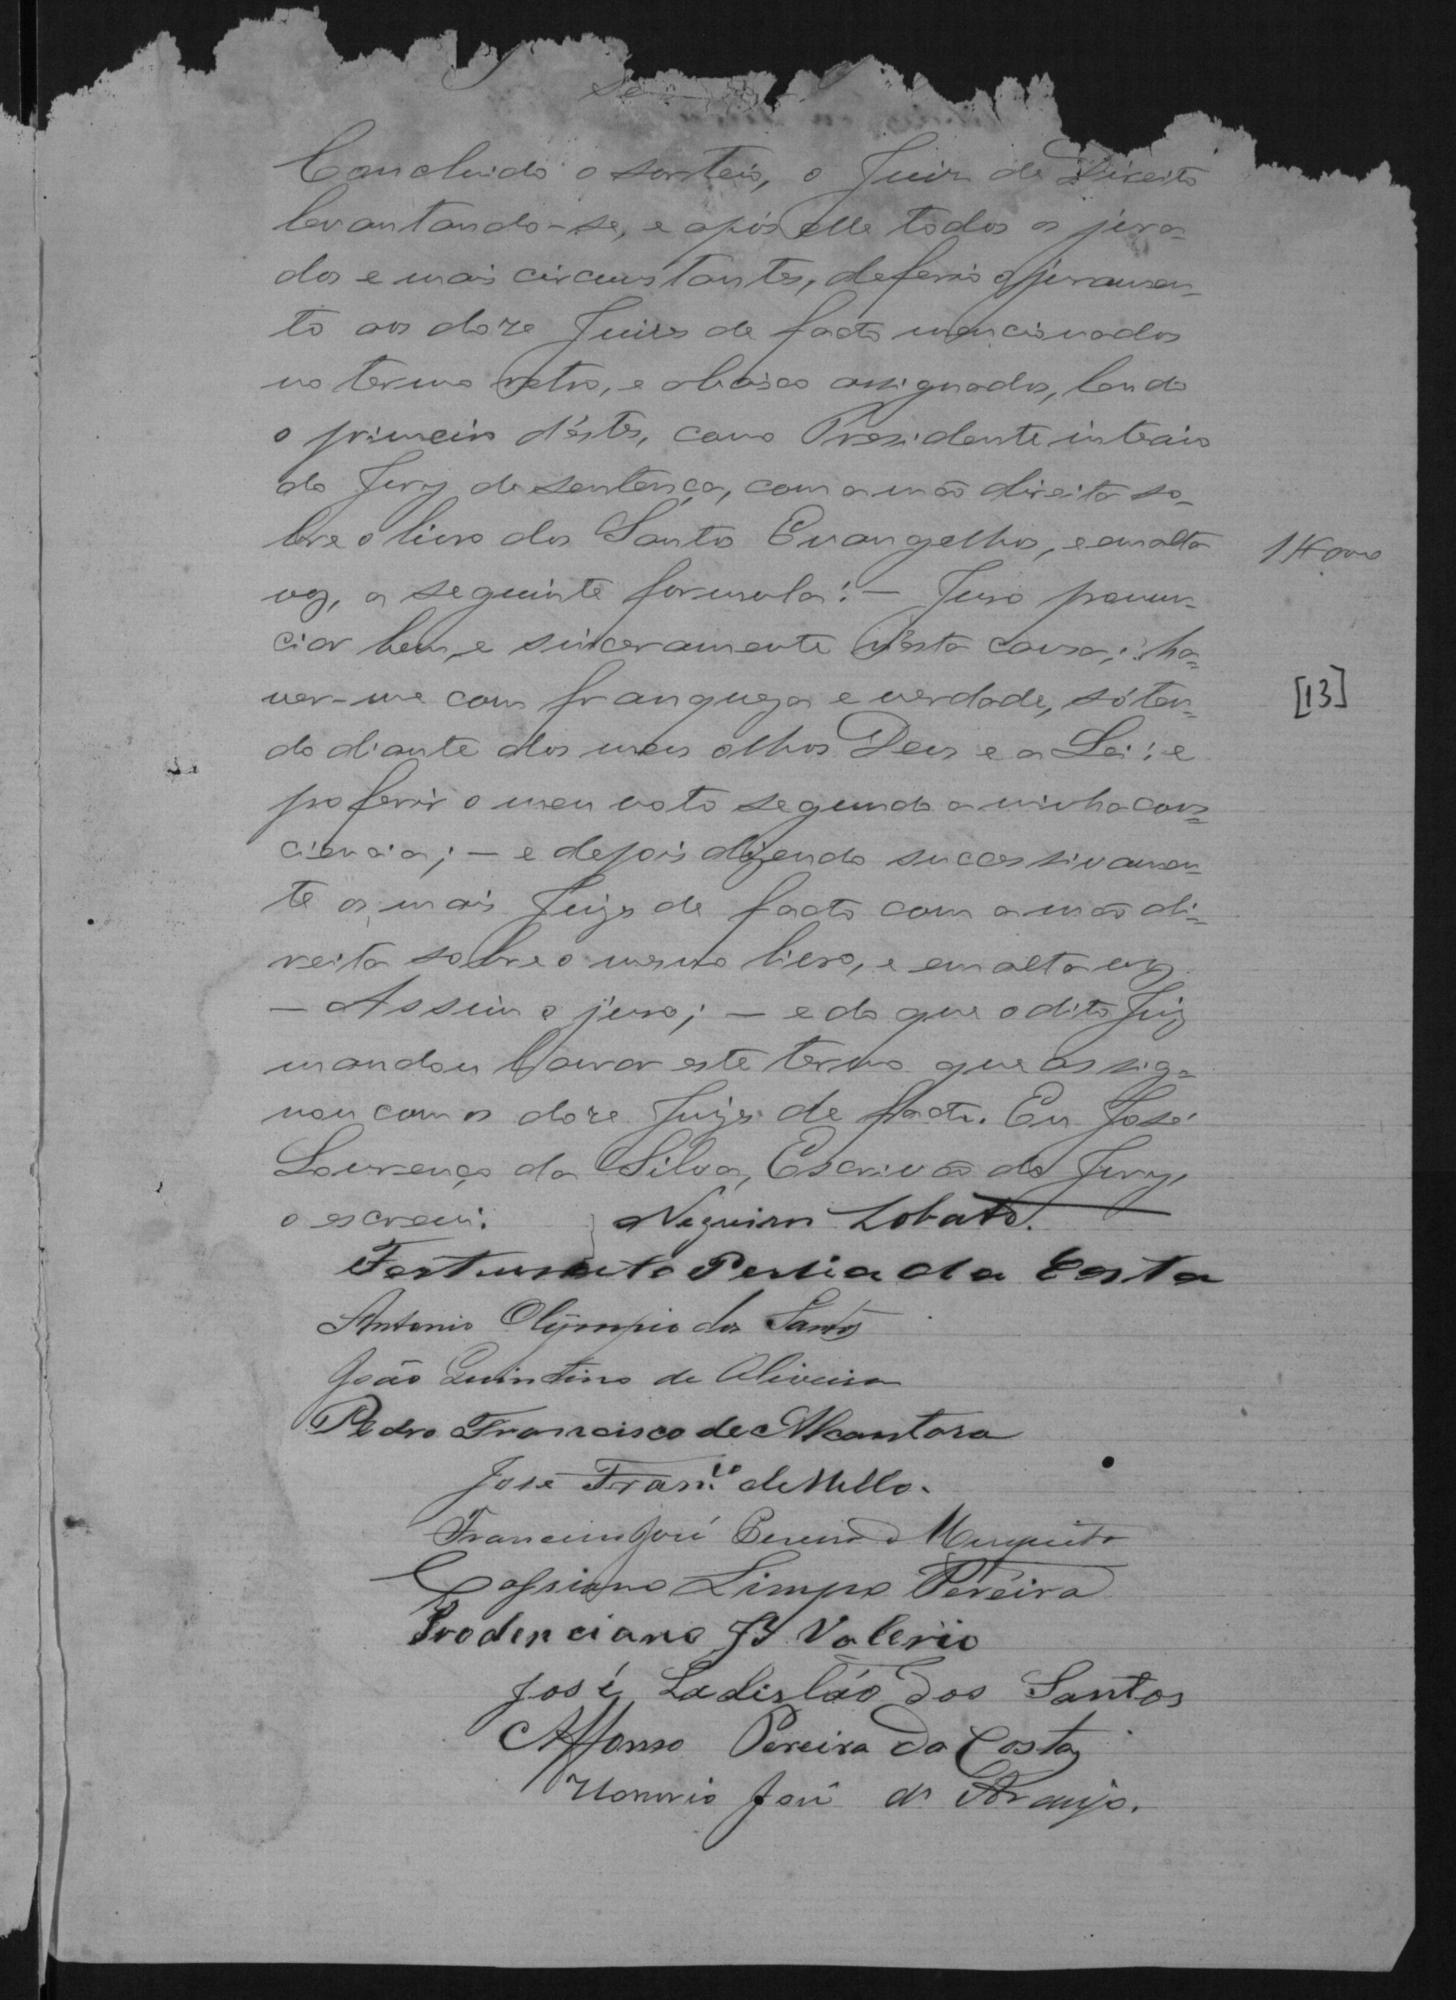 Concluido o sorteio, o Juiz de Direito
levantando-se, e após elle todos os jura-
dos e mais circumstantes, deferio o juramen-
to aos doze Juizes de facto mencionados
no termo retro, e abaixo assignados, lendo
o primeiro d'estes, como Presidente interino
do Jury de sentença, com a mão direita so-
bre o livro dos Santos Evangelhos, e em alta
voz, a seguinte formula: — Juro pronun-
ciar bem, e sinceramente n'esta causa; ha-
ver-me com franqueza e verdade, só ten-
do diante dos meus olhos Deus e a Lei; e
proferir o meu voto segundo a minha cons-
ciencia; — e depois dizendo successivamen-
te os mais Juizes de facto com a mão di-
reita sobre o mesmo livro, e em alta voz
— Assim o juro; — e do que o dito Juiz
mandou lavrar este termo que assig-
nou com os doze Juizes de facto. Eu José
Lourenço da Silva, Escrivão do Jury,
o escrevi. Nogueira Lobato.
[13]
da Costa
Antonio Olÿmpio dos Santos
João Quintino de Oliveira
Pedro Francisco de Alcantara
José Fran.co de Mello.
Francisco José
Cassiano Limpo Pereira
Prodenciano Valerio
José Ladisláo dos Santos
Affonso Pereira da Costa
Honorio José de Araujo.